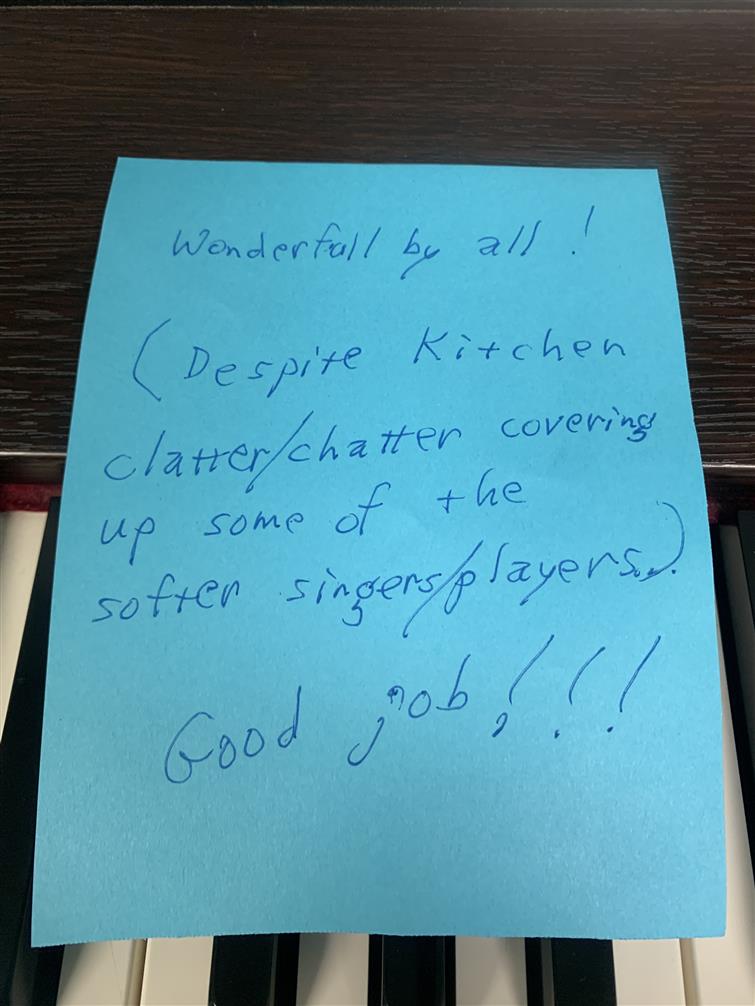 Wonderfull by all!
(Despite Kitchen
clatter/chatter covering
up some of the
softer singers/players.)
Good job!!!